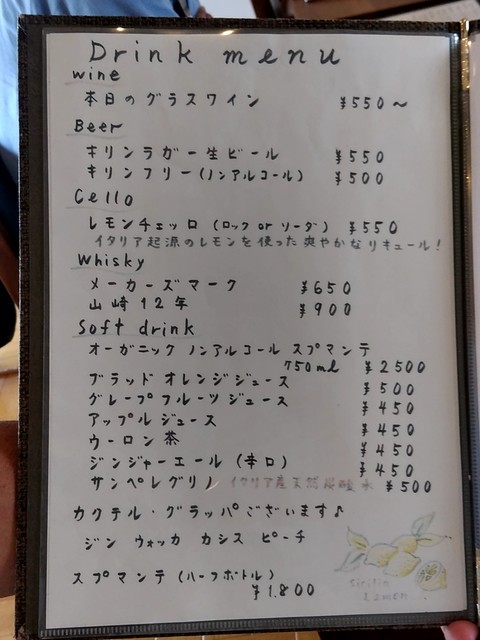 Drink menu
wine
本日のグラスワイン ¥550〜
Beer
キリンラガー生ビール ¥550
キリンフリー(ノンアルコール) ¥500
Cello
レモンチェッロ (ロック or ソーダ) ¥550
イタリア起源のレモンを使った爽やかなリキュール!
Whisky
メーカーズマーク ¥650
山崎12年 ¥900
Soft drink
オーガニック ノンアルコール スプマンテ
750ml ¥2500
ブラッド オレンジジュース ¥500
グレープフルーツ ジュース ¥450
アップル ジュース ¥450
ウーロン茶 ¥450
ジンジャーエール (辛口) ¥450
サンペレグリノ イタリア産天然炭酸水 ¥500
カクテル・グラッパございます♪
ジン ウォッカ カシス ピーチ
スプマンテ (ハーフボトル)
¥1.800